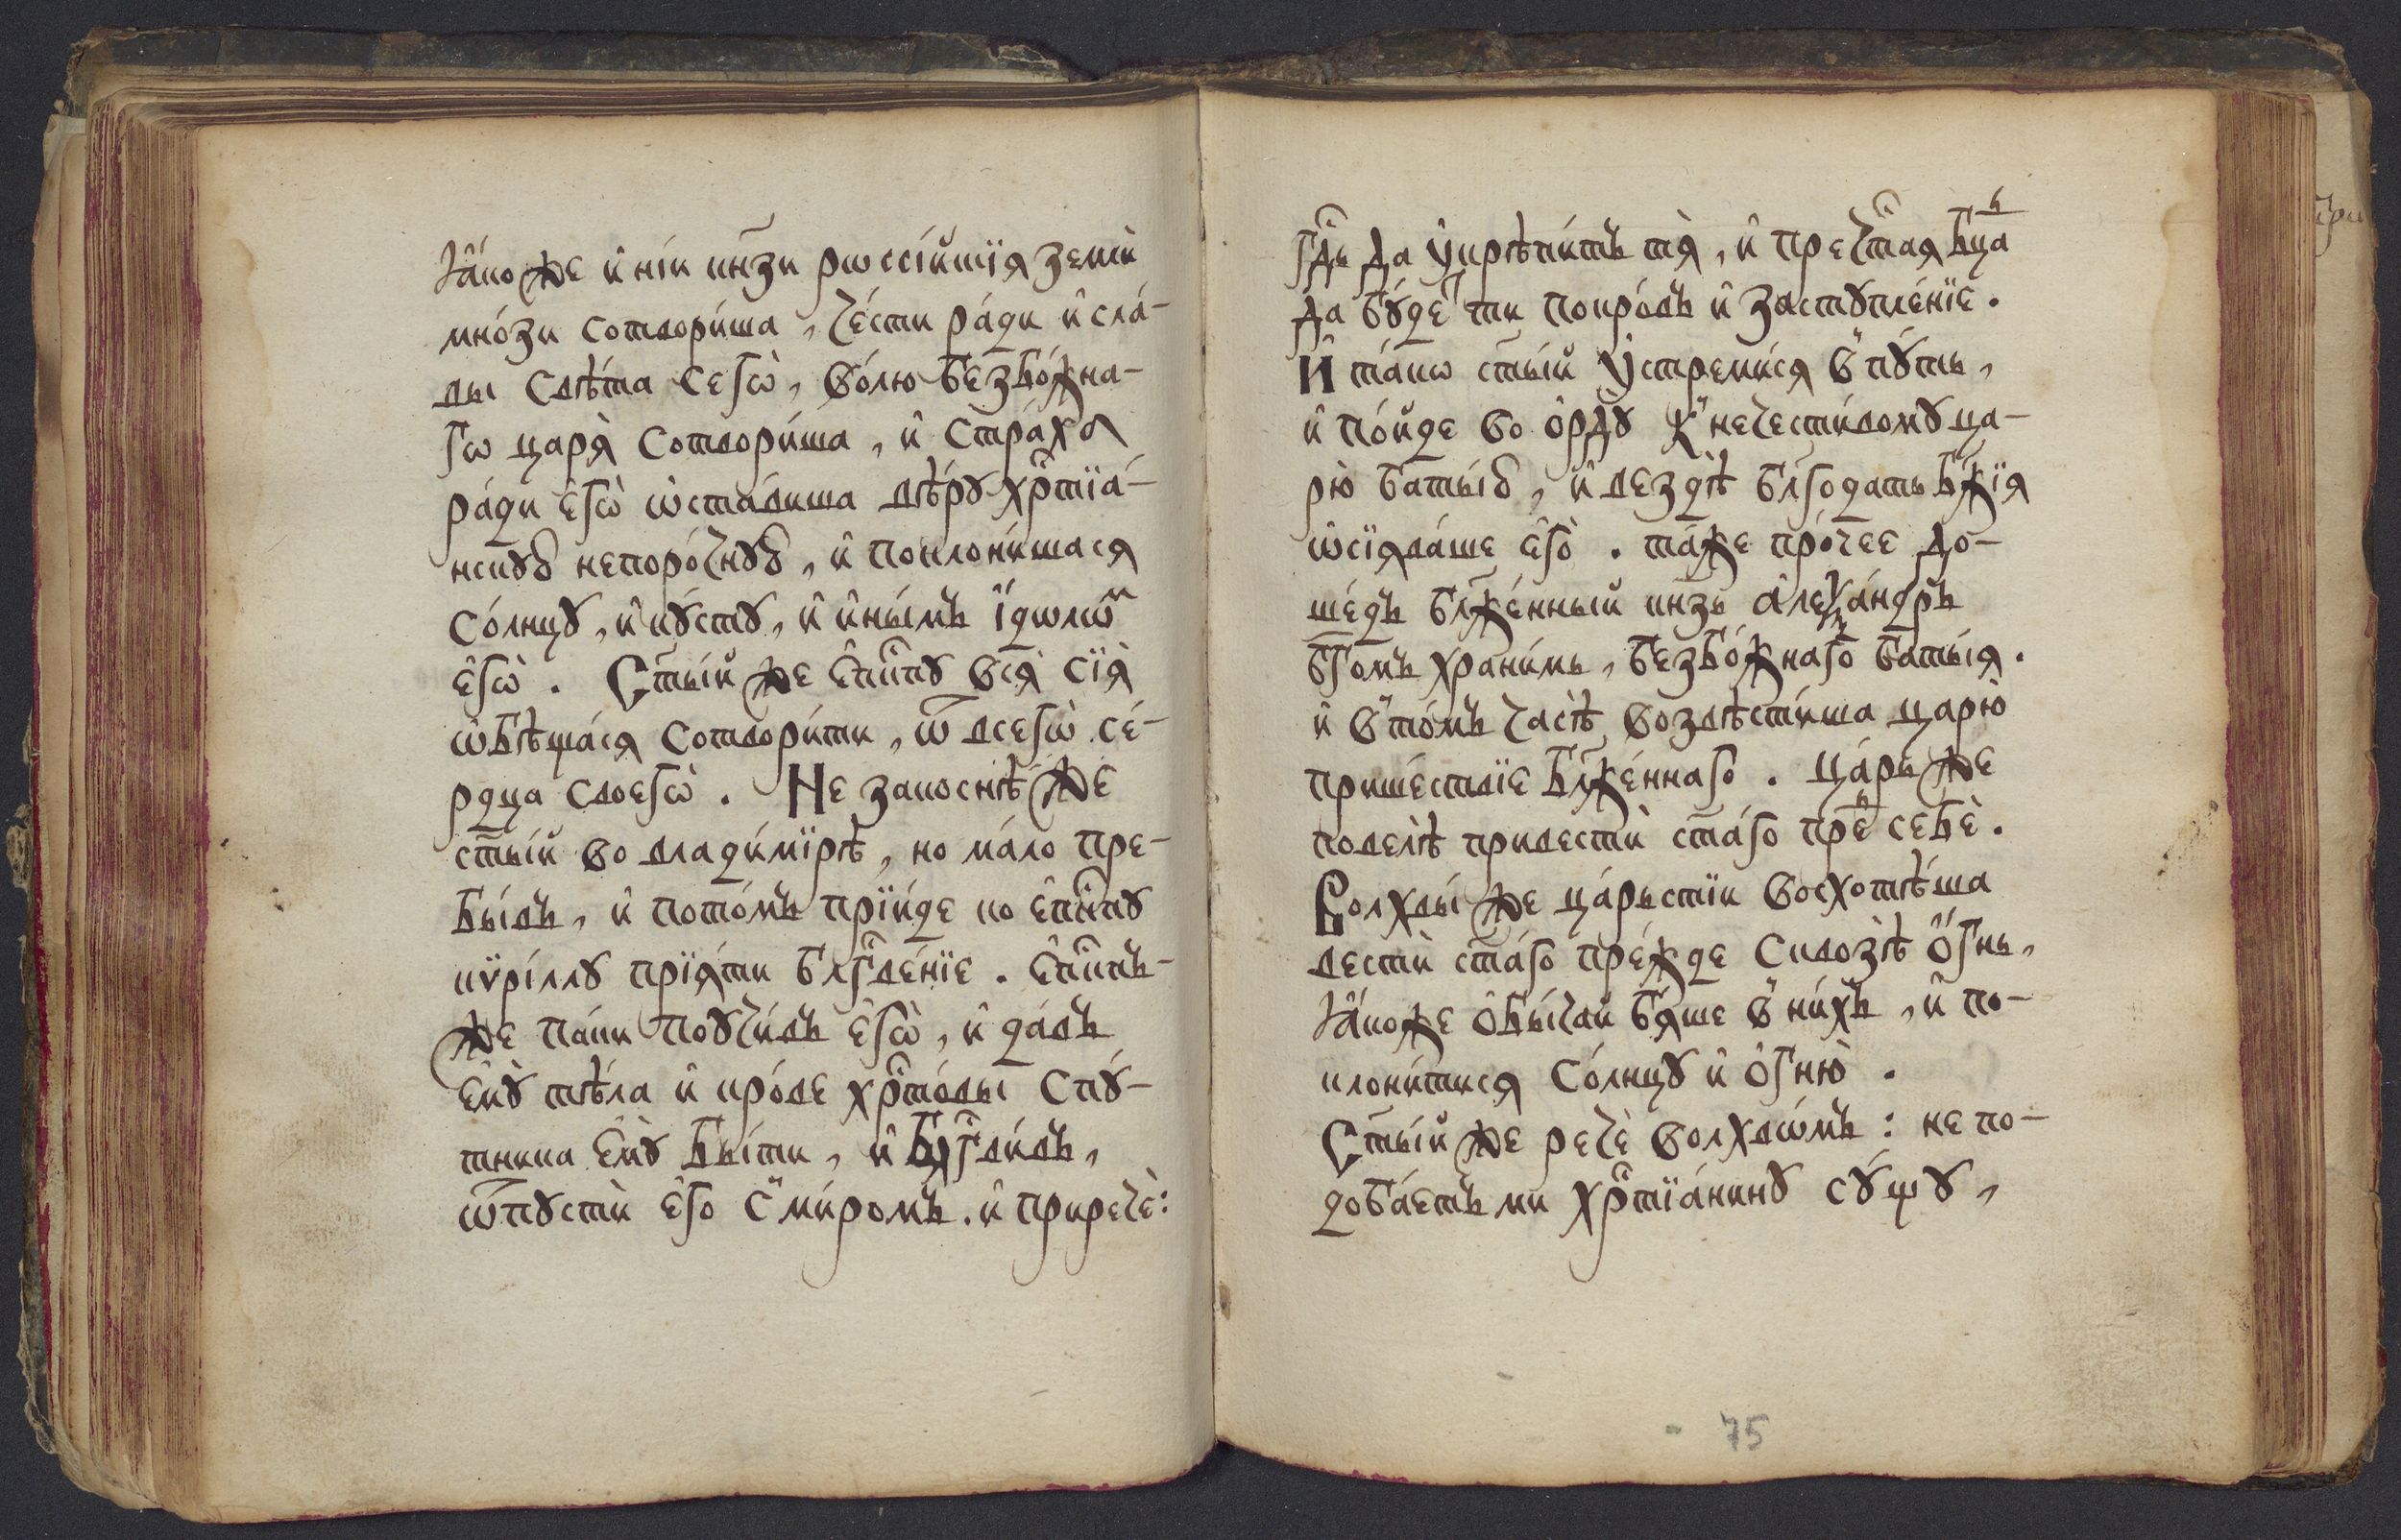 ꙗ҆́коже и҆ нíи кн҃зи рѡссíйстїѧ земли̂
мно́зи сотвори́ша, че́сти ра́ди и҆ сла́-
вы свѣ́та сегѡ̀, во́лю безбо́жна-
гѡ царѧ̀ сотвори́ша, и҆ стра́ха
ра́ди є҆гѡ̀ ѡ҆ста́виша вѣ́рꙋ хрⷭ҇тїа́-
нскꙋю непоро́чнꙋю, и҆ поклони́шасѧ
со́лнцꙋ, и҆ кꙋстꙋ̀, и҆ и҆ны́мъ і҆́дѡлѡⷨ
є҆гѡ̀. Ст҃ы́й же є҆пⷭ҇кпꙋ всѧ̀ сїѧ̀
ѡ҆бѣща́сѧ сотвори́ти, ѿ всегѡ̀ се́-
рдца своегѡ̀. Не закоснѣ́ же
ст҃ы́й во влади́мїрѣ, но ма́ло пре-
бы́въ, и҆ пото́мъ прїи́де ко є҆пⷭ҇кпꙋ
кѵрíллꙋ прїѧ́ти блгⷭ҇ве́нїе. Є҆пⷭ҇кпъ-
же па́ки поꙋчи́въ є҆гѡ̀, и҆ да́въ
є҆мꙋ̀ тѣ́ла и҆ кро́ве хрⷭ҇то́вы спꙋ́-
тника є҆мꙋ̀ бы́ти, и҆ блгⷭ҇ви́въ,
ѿпꙋсти̂ є҆го̀ с̾ ми́ромъ. и҆ приречѐ:
гдⷭ҇ь да ᲂу҆крѣпи́тъ тѧ̀, и҆ пречⷭ҇таѧ бцⷣа
да бꙋ́деⷮ ти покро́въ и҆ застꙋпле́нїе.
И҆ та́кѡ ст҃ы́й ᲂу҆стреми́сѧ в̾ пꙋ́ть,
и҆ по́йде во ѻ҆рдꙋ̀ к̾ нечести́вомꙋ ца-
рю̀ баты́ю, и҆ вездѣ̀ блгⷣода́ть бж҃їѧ
ѡ҆сїѧва́ше є҆го̀. та́же про́чее до-
ше́дъ бл҃же́нный кн҃зь а҆леѯа́ндръ
бг҃омъ храни́мь, безбо́жнаго баты́ѧ.
и҆ в̾ то́мъ часѣ̀ возвѣсти́ша царю̀
прише́ствїе бл҃же́ннаго. Ца́рь же
повелѣ̀ привести̂ ст҃а́го преⷣ себѐ.
Волхвы́ же ца́рьстїи восхотѣ́ша
вести̂ ст҃а́го пре́жде сквозѣ̀ ѻ҆́гнь,
ꙗ҆́коже ѻ҆бы́чай бѧ́ше в̾ ни́хъ, и҆ по-
клони́тисѧ со́лнцꙋ и҆ ѻ҆гню̀.
Ст҃ы́й же речѐ волхвѡ́мъ: не по-
доба́етъ ми хрⷭ҇тїа́нинꙋ сꙋ́щꙋ,
75